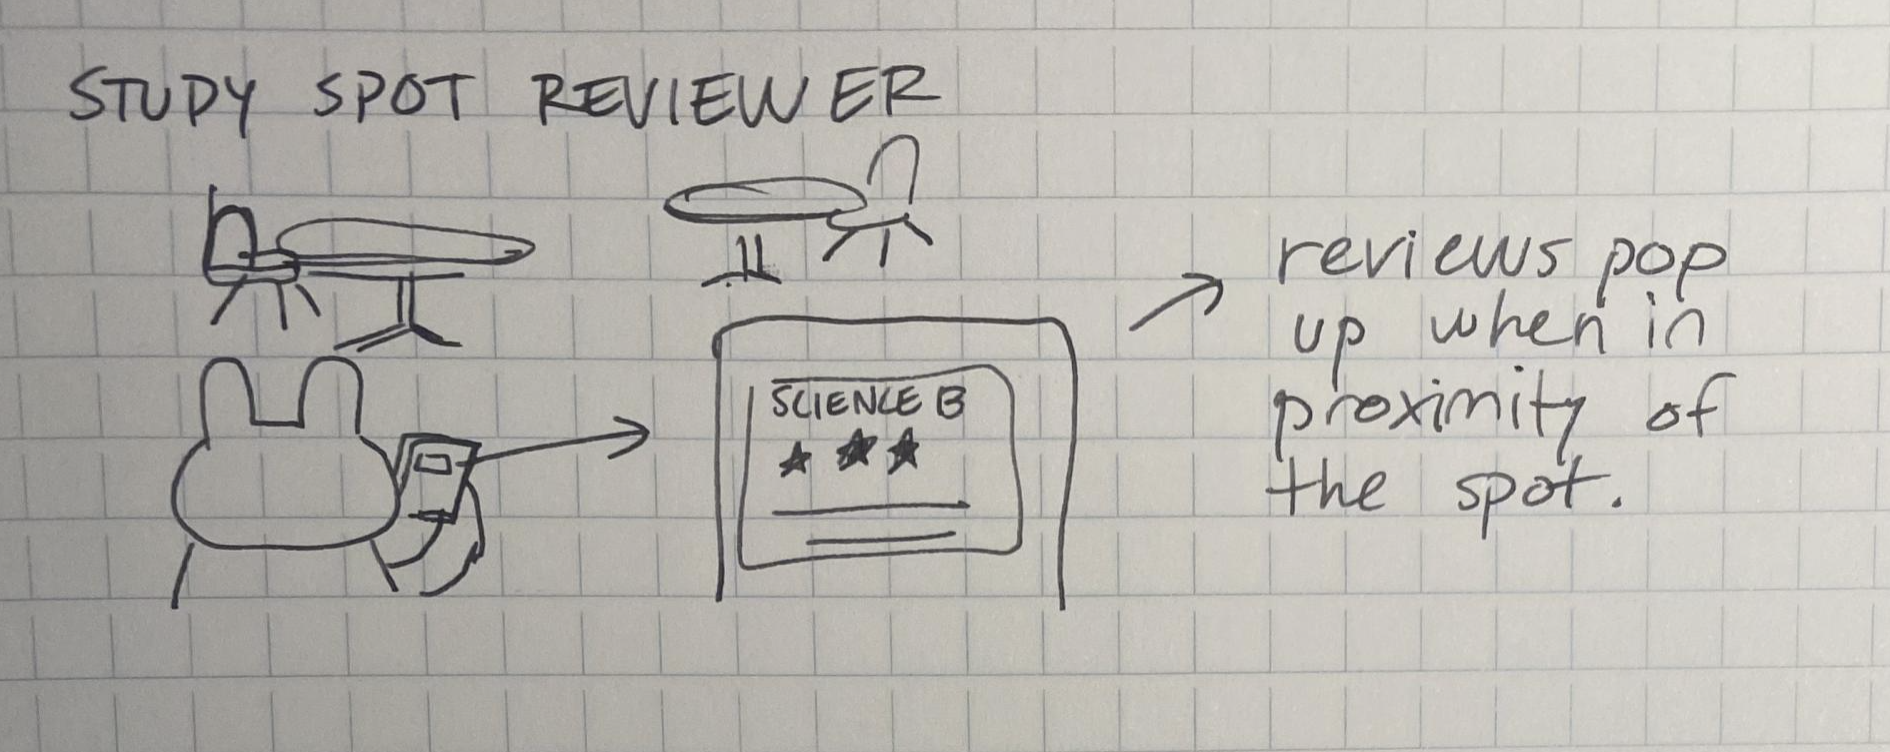 STUDY SPOT REVIEWER
SCIENCE B
reviews pop
up when in
proximity of
the spot.